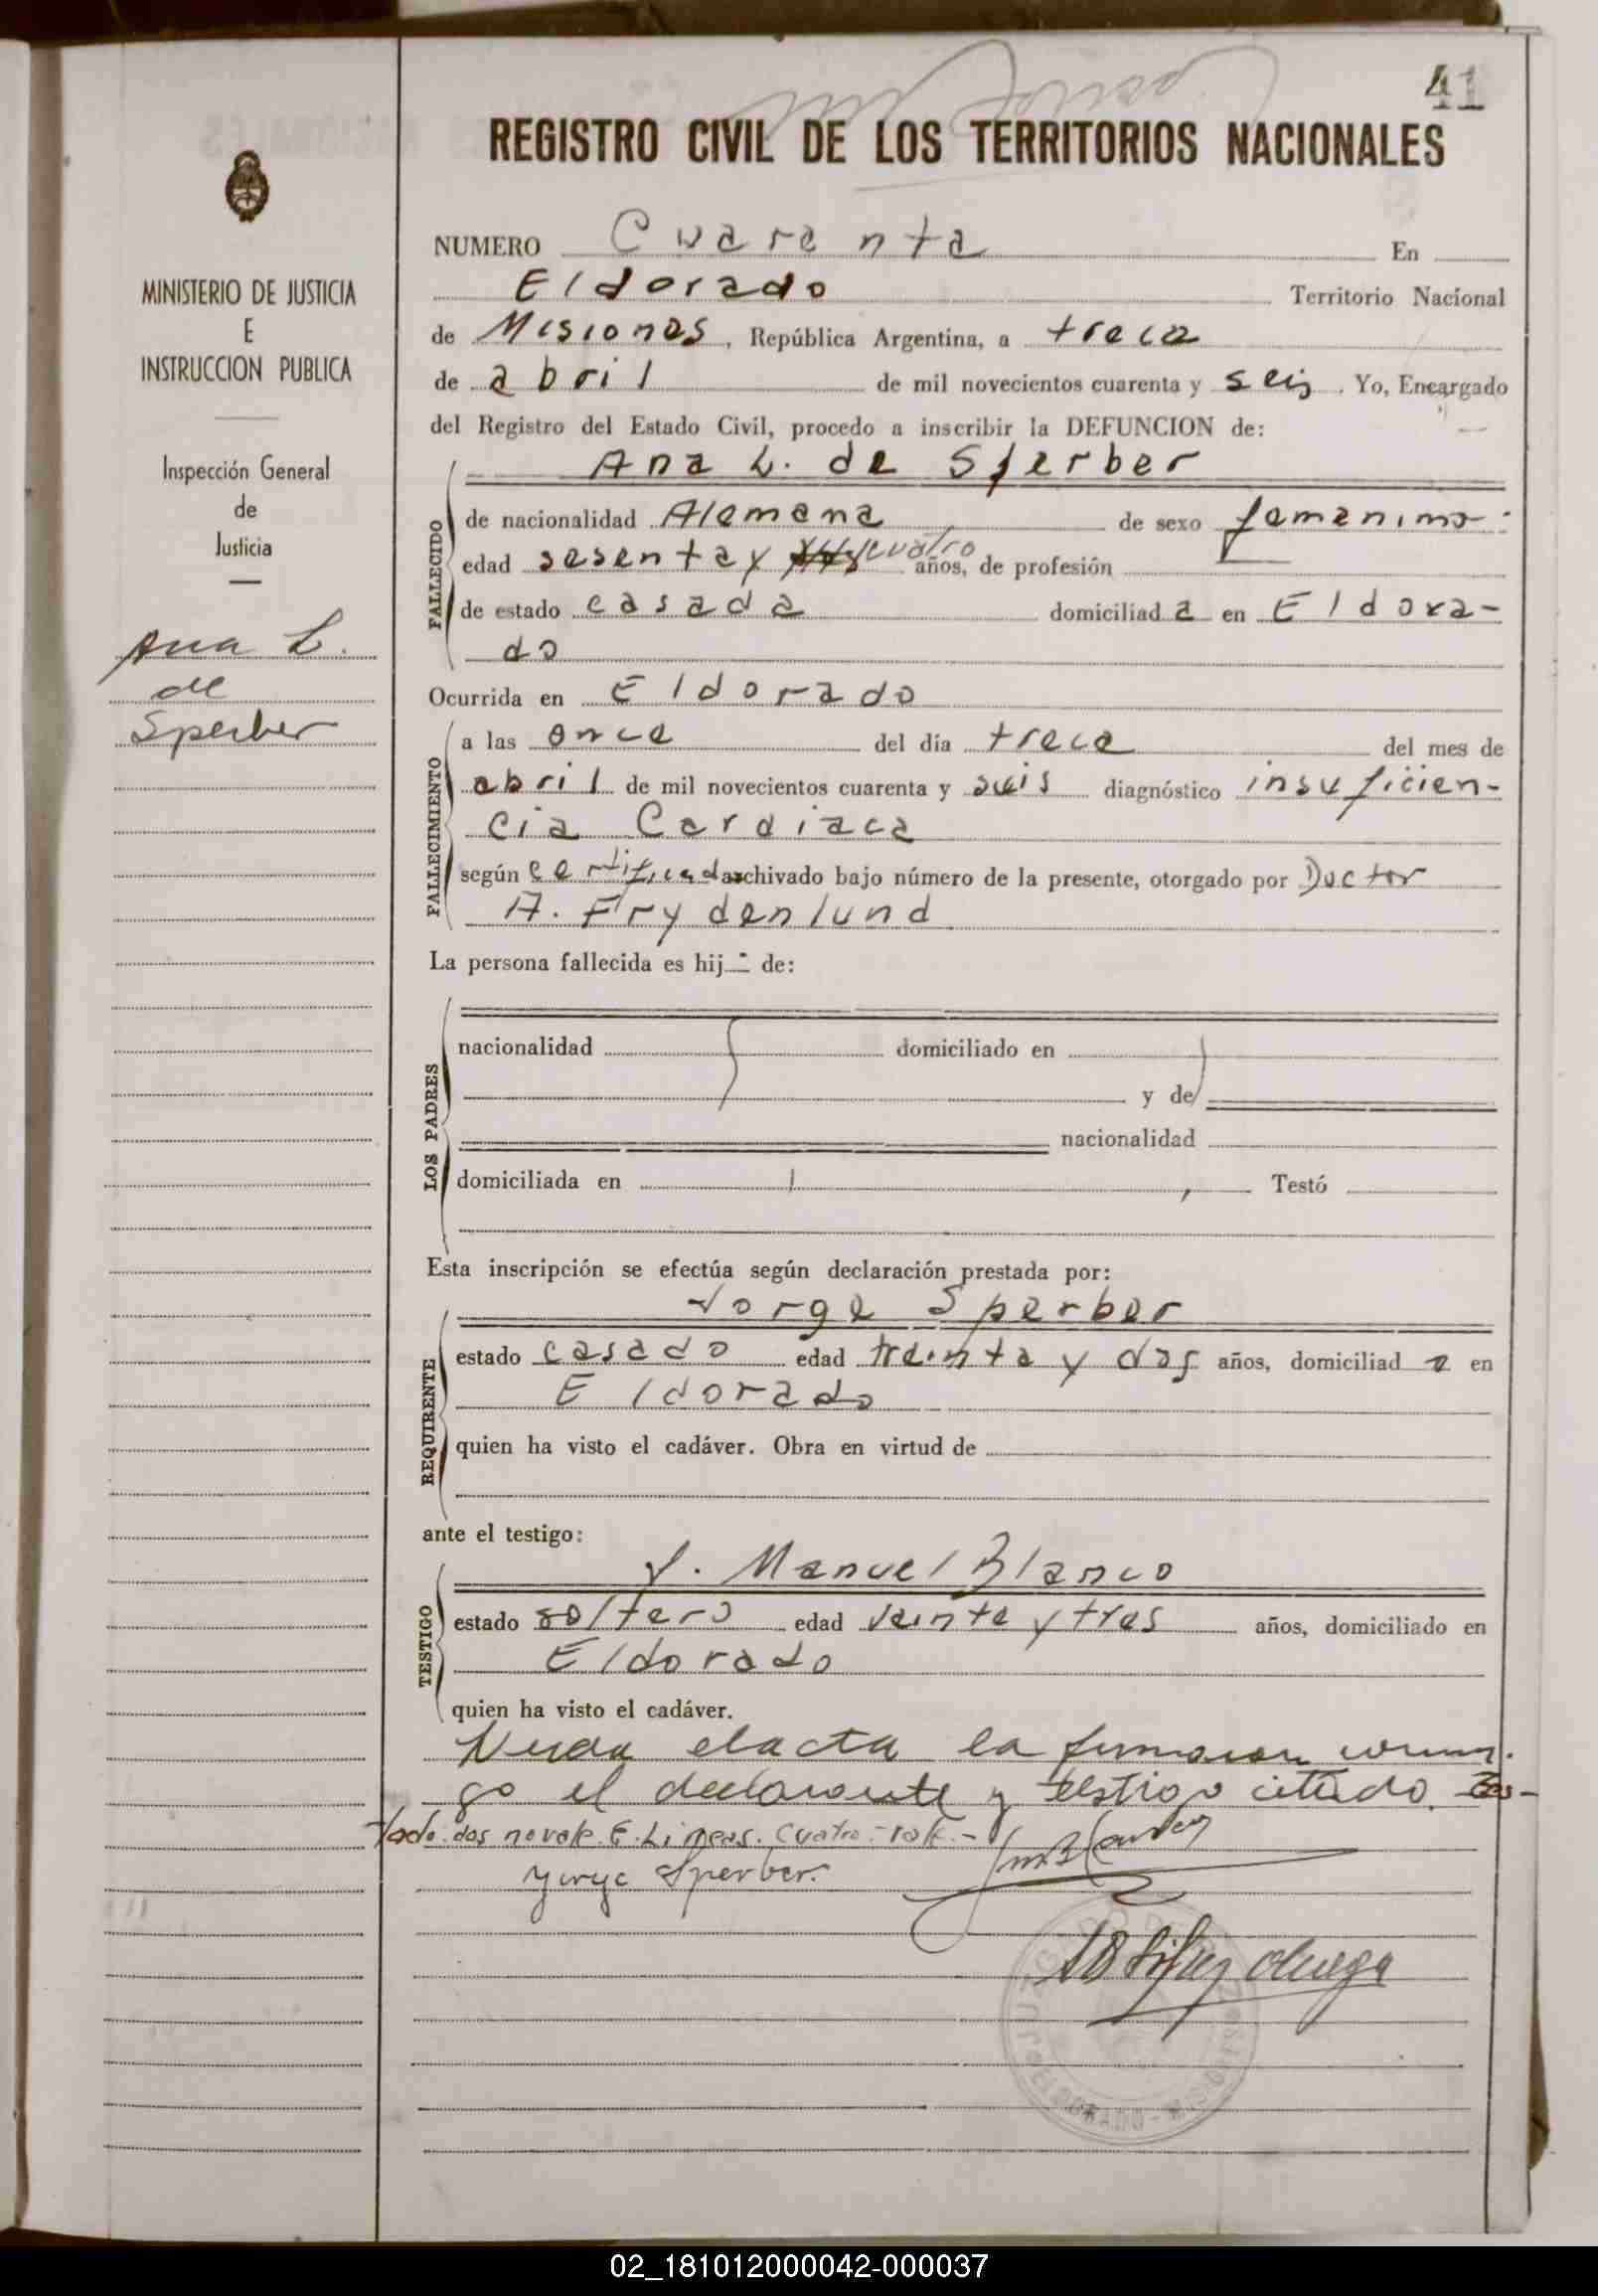 41
REGISTRO CIVIL DE LOS TERRITORIOS NACIONALES
MINISTERIO DE JUSTICIA
E
INSTRUCCION PUBLICA
Inspección General
de
Justicia
Ana L.
de
Sperber
NUMERO Cuarenta En
Eldorado Territorio Nacional
de Misiones, República Argentina, a trece
de abril de mil novecientos cuarenta y seis. Yo, Encargado
del Registro del Estado Civil, procedo a inscribir la DEFUNCION de:
Ana L. de Sperber
FALLECIDO
de nacionalidad Alemana de sexo femenino
edad sesenta y cuatro años, de profesión
de estado casada domiciliad a en Eldora-
do
Ocurrida en Eldorado
FALLECIMIENTO
a las once del día trece del mes de
abril de mil novecientos cuarenta y seis diagnóstico insuficien-
cia Cardiaca
según certificado archivado bajo número de la presente, otorgado por Doctor
A. Frydenlund
La persona fallecida es hij - de:
LOS PADRES
nacionalidad domiciliado en
y de
nacionalidad
domiciliada en Testó
Esta inscripción se efectúa según declaración prestada por:
Jorge Sperber
REQUIRENTE
estado casado edad treinta y dos años, domiciliad o en
Eldorado
quien ha visto el cadáver. Obra en virtud de
ante el testigo:
J. Manuel Blanco
TESTIGO
estado soltero edad veinte y tres años, domiciliado en
Eldorado
quien ha visto el cadáver.
el acta la firmaron conmi-
go el declarante y testigo citado. Tes-
tado. dos no vale. E. Lineas. Cuatro. vale.-
Jorge Sperber.
ELDORADO - MISIONES
02_181012000042-000037